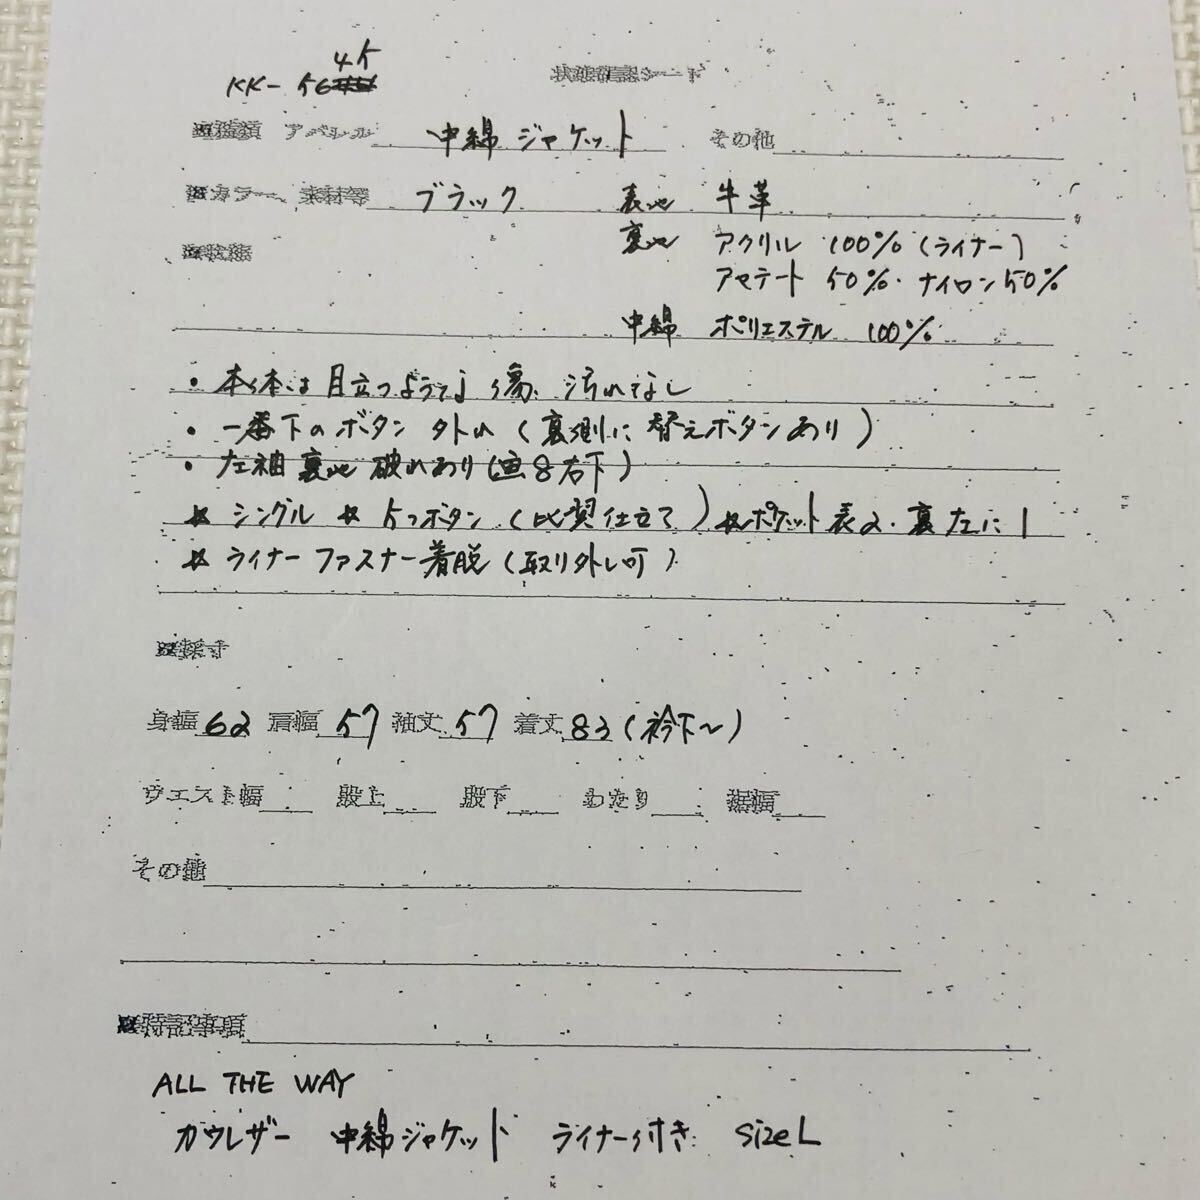 45
KK- 56
状態確認シート
※種類 アパレル 中綿 ジャケット その他
※カラー、素材等 ブラック 表地 牛革
裏地 アクリル 100% (ライナー)
※状態
アセテート 50%・ナイロン50%
中綿 ポリエステル 100%
・本体は目立つような傷、汚れなし
・一番下のボタン 外れ (裏側に替えボタンあり)
・左袖裏地 破れあり(画8右下)
☆ シングル ☆ 5つボタン (比翼仕立て) ☆ポケット 表2・裏左に1
☆ ライナー ファスナー着脱 (取り外し可)
※採寸
身幅 62 肩幅 57 袖丈 57 着丈 83 (衿下~)
ウエスト幅 股上 股下 わたり 裾幅
その他
※特記事項
ALL THE WAY
カウレザー 中綿ジャケット ライナー付き size L